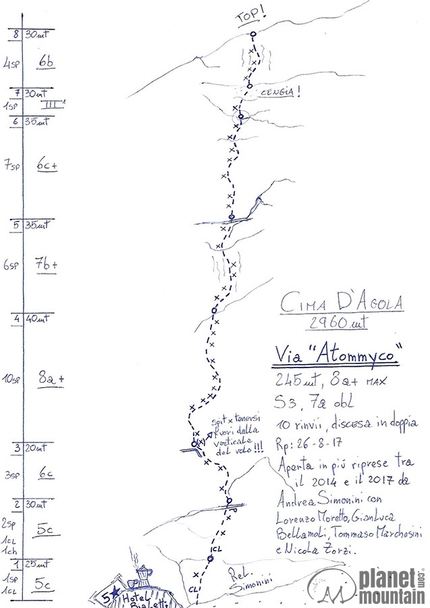 TOP!
8 30mt
4SP 6b
7 30mt
CENGIA!
1SP III°
6 35mt
7SP 6c+
5 35mt
6SP 7b+
CIMA D'AGOLA
2960 mt
4 40mt
Via "Atommyco"
10SP 8a+
245mt, 8a+ MAX
S3, 7a obl
10 rinvii, discesa in doppia
Rp: 26-8-17
spit x tenersi
fuori dalla
verticale
del volo!!!
3 20mt
3SP 6c
Aperta in più riprese tra
il 2014 e il 2017 da
Andrea Simonini con
Lorenzo Moretto, Gianluca
Bellamoli, Tommaso Marchesini
e Nicola Zorzi.
2 30mt
2SP
1CL
1ch
5c
1CL
1 25mt
1SP
1CL
5c
CL
Rel.
Simonini
5★ Hotel
Bialetti
planet
mountain
.com